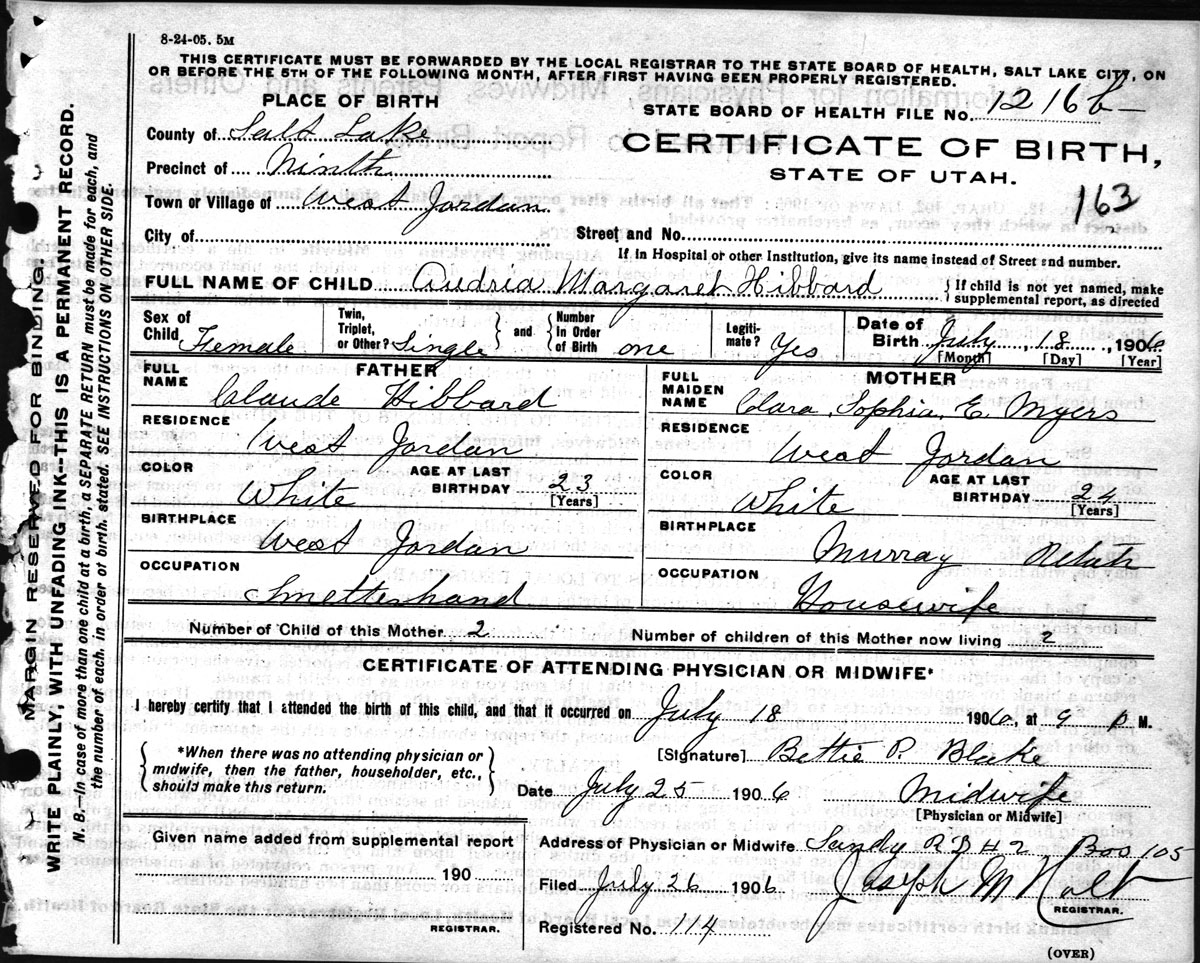 8-24-05. 5M
THIS CERTIFICATE MUST BE FORWARDED BY THE LOCAL REGISTRAR TO THE STATE BOARD OF HEALTH, SALT LAKE CITY, ON
OR BEFORE THE 5TH OF THE FOLLOWING MONTH, AFTER FIRST HAVING BEEN PROPERLY REGISTERED.
PLACE OF BIRTH
STATE BOARD OF HEALTH FILE No. 1216b
County of Salt Lake
CERTIFICATE OF BIRTH,
Precinct of Ninth
STATE OF UTAH.
Town or Village of West Jordan
163
City of
Street and No.
If in Hospital or other Institution, give its name instead of Street end number.
FULL NAME OF CHILD Audria Margaret Hibbard { If child is not yet named, make
supplemental report, as directed
Sex of Child Female
Twin, Triplet, or Other? Single } and { Number In Order of Birth one
Legiti-mate? Yes
Date of Birth July 18, 1906
[Month] [Day] [Year]
FATHER
FULL NAME Claude Hibbard
RESIDENCE West Jordan
COLOR White
AGE AT LAST BIRTHDAY 23 [Years]
BIRTHPLACE West Jordan
OCCUPATION Smelterhand
MOTHER
FULL MAIDEN NAME Clara Sophia E. Myers
RESIDENCE West Jordan
COLOR White
AGE AT LAST BIRTHDAY 24 [Years]
BIRTHPLACE Murray Utah
OCCUPATION Housewife
Number of Child of this Mother 2
Number of children of this Mother now living 2
CERTIFICATE OF ATTENDING PHYSICIAN OR MIDWIFE*
I hereby certify that I attended the birth of this child, and that it occurred on July 18 1906, at 9 P M.
{ *When there was no attending physician or
midwife, then the father, householder, etc.,
should make this return. }
[Signature] Bettie P.
Date July 25 1906 Midwife
[Physician or Midwife]
Given name added from supplemental report
190
REGISTRAR.
Address of Physician or Midwife Sandy R 2 Box 105
Filed July 26 1906 Joseph M Holt
REGISTRAR.
Registered No. 114
(OVER)
MARGIN RESERVED FOR BINDING.
WRITE PLAINLY, WITH UNFADING INK--THIS IS A PERMANENT RECORD.
N. B.—In case of more than one child at a birth, a SEPARATE RETURN must be made for each, and
the number of each, in order of birth, stated. SEE INSTRUCTIONS ON OTHER SIDE.